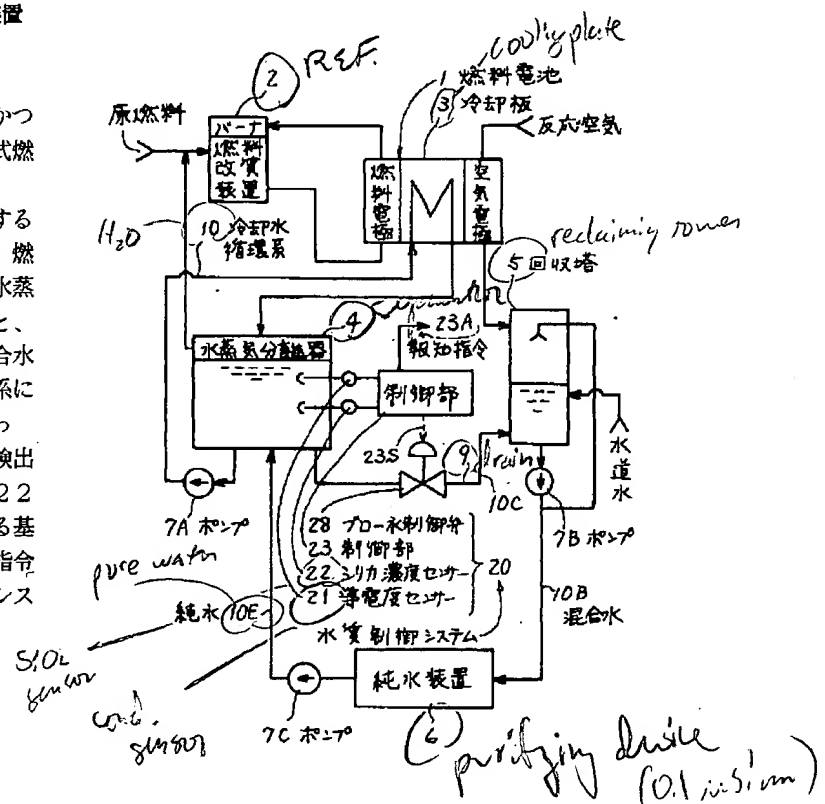 置
かつ
式燃
する
燃
水蒸
と、
合水
系に
っ
検出
22
る基
指令
ンス
2
REF.
cooling plate
1 燃料電池
3 冷却板
原燃料
バーナ
燃料
改質
装置
反応空気
燃料電極
空気電極
H2O
10 冷却水
循環系
reclaiming
5 回収塔
4
水蒸気分離器
23A
報知指令
制御部
23S
9
drain
10C
水道水
7A ポンプ
7B ポンプ
28 ブロー水制御弁
23 制御部
22 シリカ濃度センサー
21 導電度センサー
20
水質制御システム
pure water
純水 10E
10B
混合水
SiO2
sensor
cond.
sensor
7C ポンプ
純水装置
6
purifying device